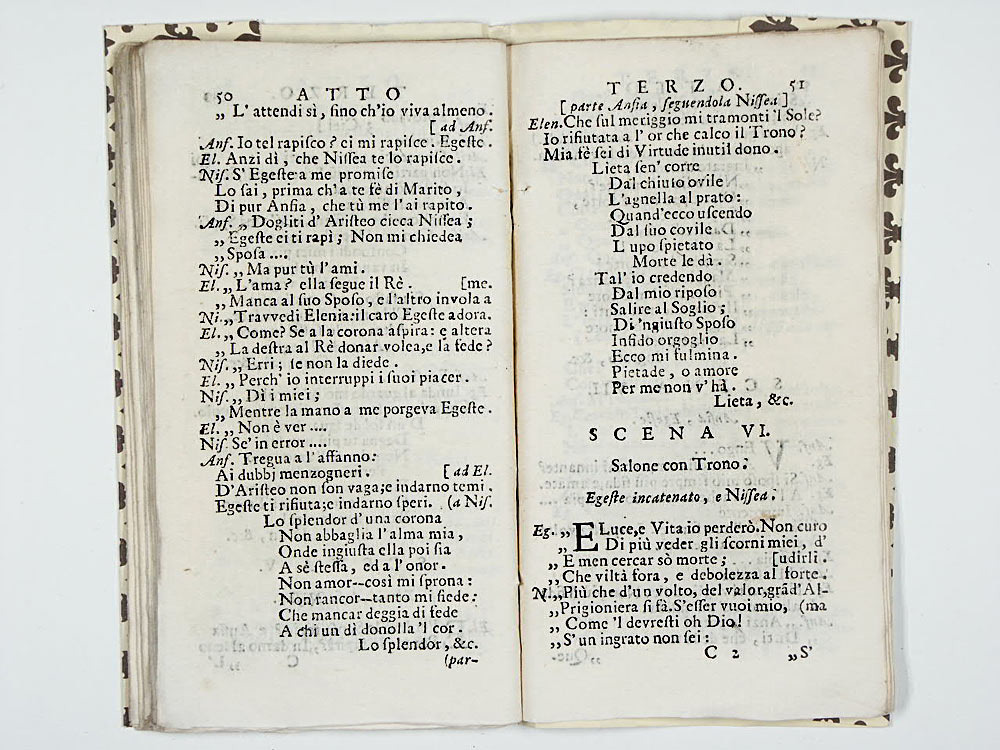 50 ATTO
„ L' attendi sì, ſino ch'io viva almeno.
[ ad Anſ.
Anſ. Io tel rapiſco? ei mi rapiſce. Egeſte.
El. Anzi dì, che Niſſea te lo rapiſce.
Niſ. S' Egeſte a me promiſe
Lo ſai, prima ch'a te fè di Marito,
Di pur Anſia, che tù me l'ai rapito.
Anſ. „ Dogliti d' Ariſteo cieca Niſſea;
„ Egeſte ei ti rapì; Non mi chiedea
„ Spoſa ....
Niſ. „ Ma pur tù l'ami.
El. „ L'ama? ella ſegue il Rè. [me.
„ Manca al ſuo Spoſo, e l'altro invola a
Ni. „ Travvedi Elenia: il caro Egeſte adora.
El. „ Come? Se a la corona aſpira: e altera
„ La deſtra al Rè donar volea, e la fede?
Niſ. „ Erri; ſe non la diede.
El. „ Perch' io interruppi i ſuoi piacer.
Niſ. „ Dì i miei;
„ Mentre la mano a me porgeva Egeſte.
El. „ Non è ver ....
Niſ. Se' in error ....
Anſ. Tregua a l'affanno:
Ai dubbj menzogneri. [ ad El.
D'Ariſteo non ſon vaga; e indarno temi.
Egeſte ti rifiuta; e indarno ſperi. (a Niſ.
Lo ſplendor d'una corona
Non abbaglia l'alma mia,
Onde ingiuſta ella poi ſia
A sè ſteſſa, ed a l'onor.
Non amor--così mi ſprona:
Non rancor--tanto mi ſiede:
Che mancar deggia di fede
A chi un dì donolla 'l cor.
Lo ſplendor, &c.
(par-
TERZO. 51
[ parte Anſia, ſeguendola Niſſea ]
Elen. Che ſul meriggio mi tramonti 'l Sole?
Io rifiutata a l' or che calco il Trono?
Mia fè ſei di Virtude inutil dono.
Lieta ſen' corre
Dal chiuſo ovile
L'agnella al prato:
Quand'ecco uſcendo
Dal ſuo covile
L upo ſpietato
Morte le dà.
Tal' io credendo
Dal mio ripoſo
Salire al Soglio;
Di 'ngiuſto Spoſo
Infido orgoglio
Ecco mi fulmina.
Pietade, o amore
Per me non v' hà.
Lieta, &c.
SCENA VI.
Salone con Trono.
Egeſte incatenato, e Niſſea.
Eg. „ E Luce, e Vita io perderò. Non curo
„ Di più veder gli ſcorni miei, d'
„ E men cercar sò morte; [udirli.
„ Che viltà fora, e debolezza al forte.
N. „ Più che d'un volto, del valor, grãd'Al-
„ Prigioniera ſi fà. S'eſſer vuoi mio, (ma
„ Come 'l devreſti oh Dio!
„ S' un ingrato non ſei:
C 2 „ S'